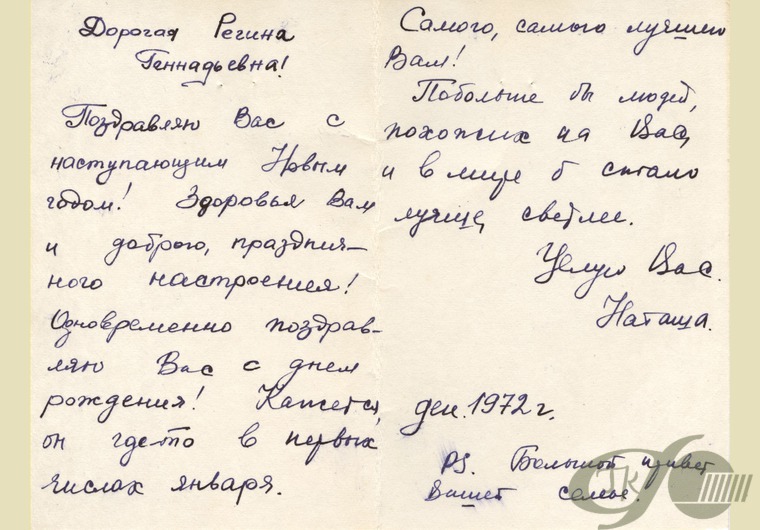 Дорогая Регина
Геннадьевна!
Поздравляю Вас с
наступающим Новым
годом! Здоровья Вам
и доброго, празднич-
ного настроения!
Одновременно поздрав-
ляю Вас с днем
рождения! Кажется,
он где-то в первых
числах января.
Самого, самого лучшего
Вам!
Побольше бы людей,
похожих на Вас,
и в мире б стало
лучше, светлее.
Целую Вас.
Наташа.
дек. 1972 г.
PS. Большой привет
Вашей семье.